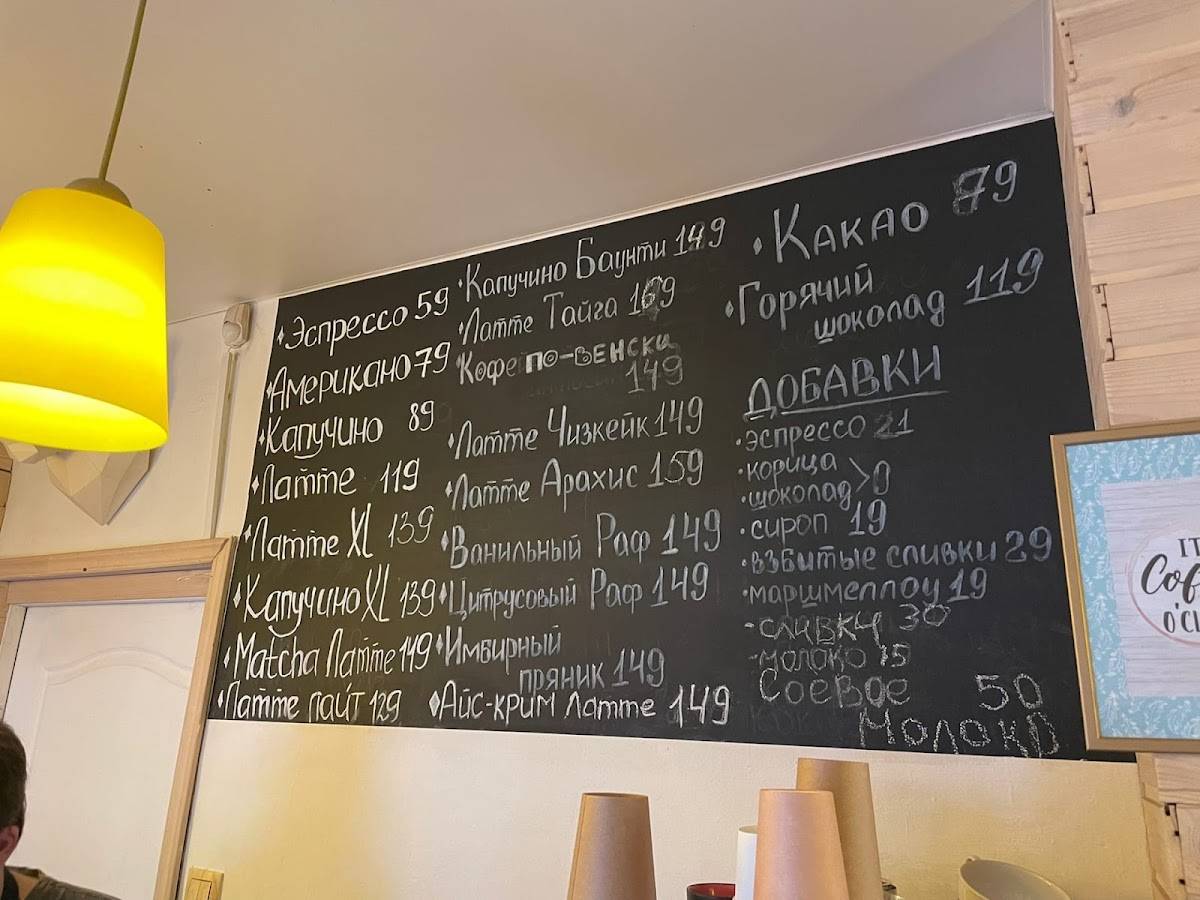 Эспрессо 59
Американо 79
Капучино 89
Латте 119
Латте XL 139
Капучино XL 139
Matcha Латте 149
Латте лайт 129
Капучино Баунти 149
Латте Тайга 169
Кофе по-венски
149
Латте Чизкейк 149
Латте Арахис 159
Ванильный Раф 149
Цитрусовый Раф 149
Имбирный
пряник 149
Айс-крим латте 149
Какао 79
Горячий
шоколад 119
ДОБАВКИ
эспрессо 21
корица
шоколад > 0
сироп 19
взбитые сливки 29
маршмеллоу 19
-сливки 30
-молоко 15
Соевое 50
Молоко
IT
O'Cl